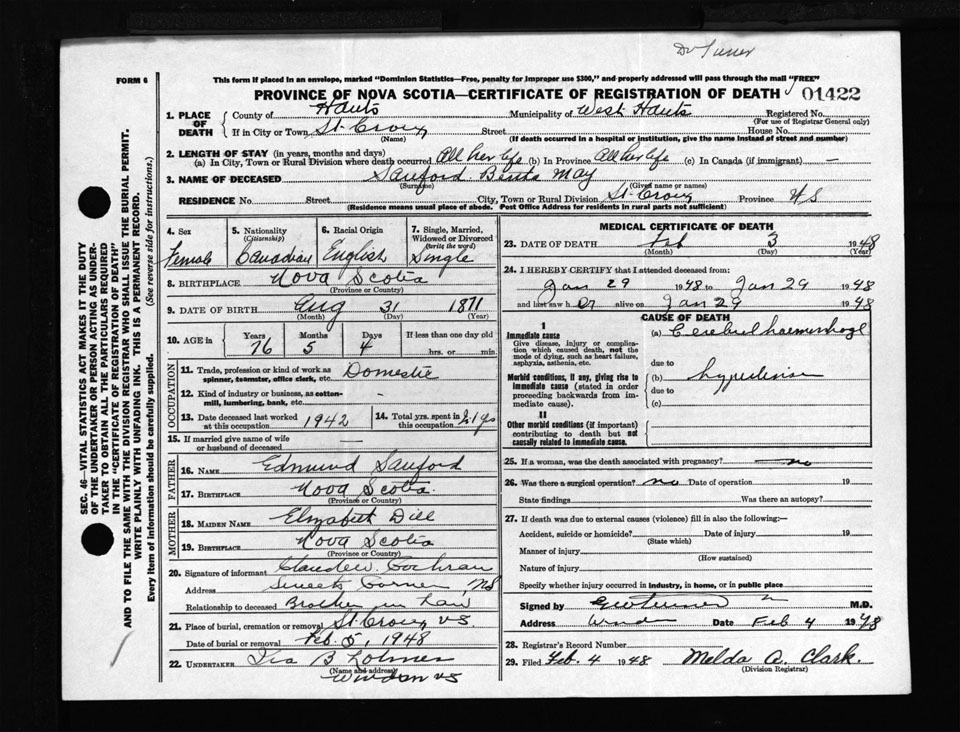 Dr Turner
FORM 6
This form if placed in an envelope, marked "Dominion Statistics—Free, penalty for improper use $300," and properly addressed will pass through the mail "FREE"
PROVINCE OF NOVA SCOTIA—CERTIFICATE OF REGISTRATION OF DEATH 01422
1. PLACE OF DEATH County of Hants Municipality of West Hants Registered No.
(For use of Registrar General only)
If in City or Town St. Croix Street House No.
(Name) (If death occurred in a hospital or institution, give the name instead of street and number)
2. LENGTH OF STAY (in years, months and days)
(a) In City, Town or Rural Division where death occurred All her life (b) In Province All her life (c) In Canada (if immigrant) —
3. NAME OF DECEASED Sanford May
(Surname) (Given name or names)
RESIDENCE No. Street City, Town or Rural Division St. Croix Province NS
(Residence means usual place of abode. Post Office Address for residents in rural parts not sufficient)
4. Sex Female
5. Nationality (Citizenship) Canadian
6. Racial Origin English
7. Single, Married, Widowed or Divorced (write the word) Single
8. BIRTHPLACE Nova Scotia
(Province or Country)
9. DATE OF BIRTH Aug 31 1871
(Month) (Day) (Year)
10. AGE in Years 76 Months 5 Days 4 If less than one day old hrs. or min.
OCCUPATION
11. Trade, profession or kind of work as spinner, teamster, office clerk, etc. Domestic
12. Kind of industry or business, as cotton-mill, lumbering, bank, etc. —
13. Date deceased last worked at this occupation 1942
14. Total yrs. spent in this occupation yrs
15. If married give name of wife or husband of deceased —
FATHER
16. NAME Edmund Sanford
17. BIRTHPLACE Nova Scotia
(Province or Country)
MOTHER
18. MAIDEN NAME Elizabeth Dill
19. BIRTHPLACE Nova Scotia
(Province or Country)
20. Signature of informant Claude W. Cochran
Address Sweets Corner, NS
Relationship to deceased Brother in Law
21. Place of burial, cremation or removal St. Croix N.S.
Date of burial or removal Feb. 5, 1948
22. UNDERTAKER Ira B Lohnes
(Name and address)
Windsor NS
MEDICAL CERTIFICATE OF DEATH
23. DATE OF DEATH Feb 3 1948
(Month) (Day) (Year)
24. I HEREBY CERTIFY that I attended deceased from:
Jan 29 1948 to Jan 29 1948
and last saw her alive on Jan 29 1948
CAUSE OF DEATH
I
Immediate cause
Give disease, injury or complication which caused death, not the mode of dying, such as heart failure, asphyxia, asthenia, etc.
(a) Cerebral haemorrhage
due to
Morbid conditions, if any, giving rise to immediate cause (stated in order proceeding backwards from immediate cause).
(b) hypertension
due to
(c)
II
Other morbid conditions (if important) contributing to death but not causally related to immediate cause.
25. If a woman, was the death associated with pregnancy? no
26. Was there a surgical operation? no Date of operation 19
State findings Was there an autopsy?
27. If death was due to external causes (violence) fill in also the following:—
Accident, suicide or homicide? Date of injury 19
(State which)
Manner of injury
(How sustained)
Nature of injury
Specify whether injury occurred in industry, in home, or in public place
Signed by G W Turner M.D.
Address Windsor Date Feb 4 1948
28. Registrar's Record Number
29. Filed Feb. 4 1948 Melda A. Clark.
(Division Registrar)
SEC. 46—VITAL STATISTICS ACT MAKES IT THE DUTY
OF THE UNDERTAKER OR PERSON ACTING AS UNDER-
TAKER TO OBTAIN ALL THE PARTICULARS REQUIRED
IN THE "CERTIFICATE OF REGISTRATION OF DEATH"
AND TO FILE THE SAME WITH THE DIVISION REGISTRAR WHO SHALL ISSUE THE BURIAL PERMIT.
WRITE PLAINLY WITH UNFADING INK. THIS IS A PERMANENT RECORD.
Every item of information should be carefully supplied. (See reverse side for instructions.)